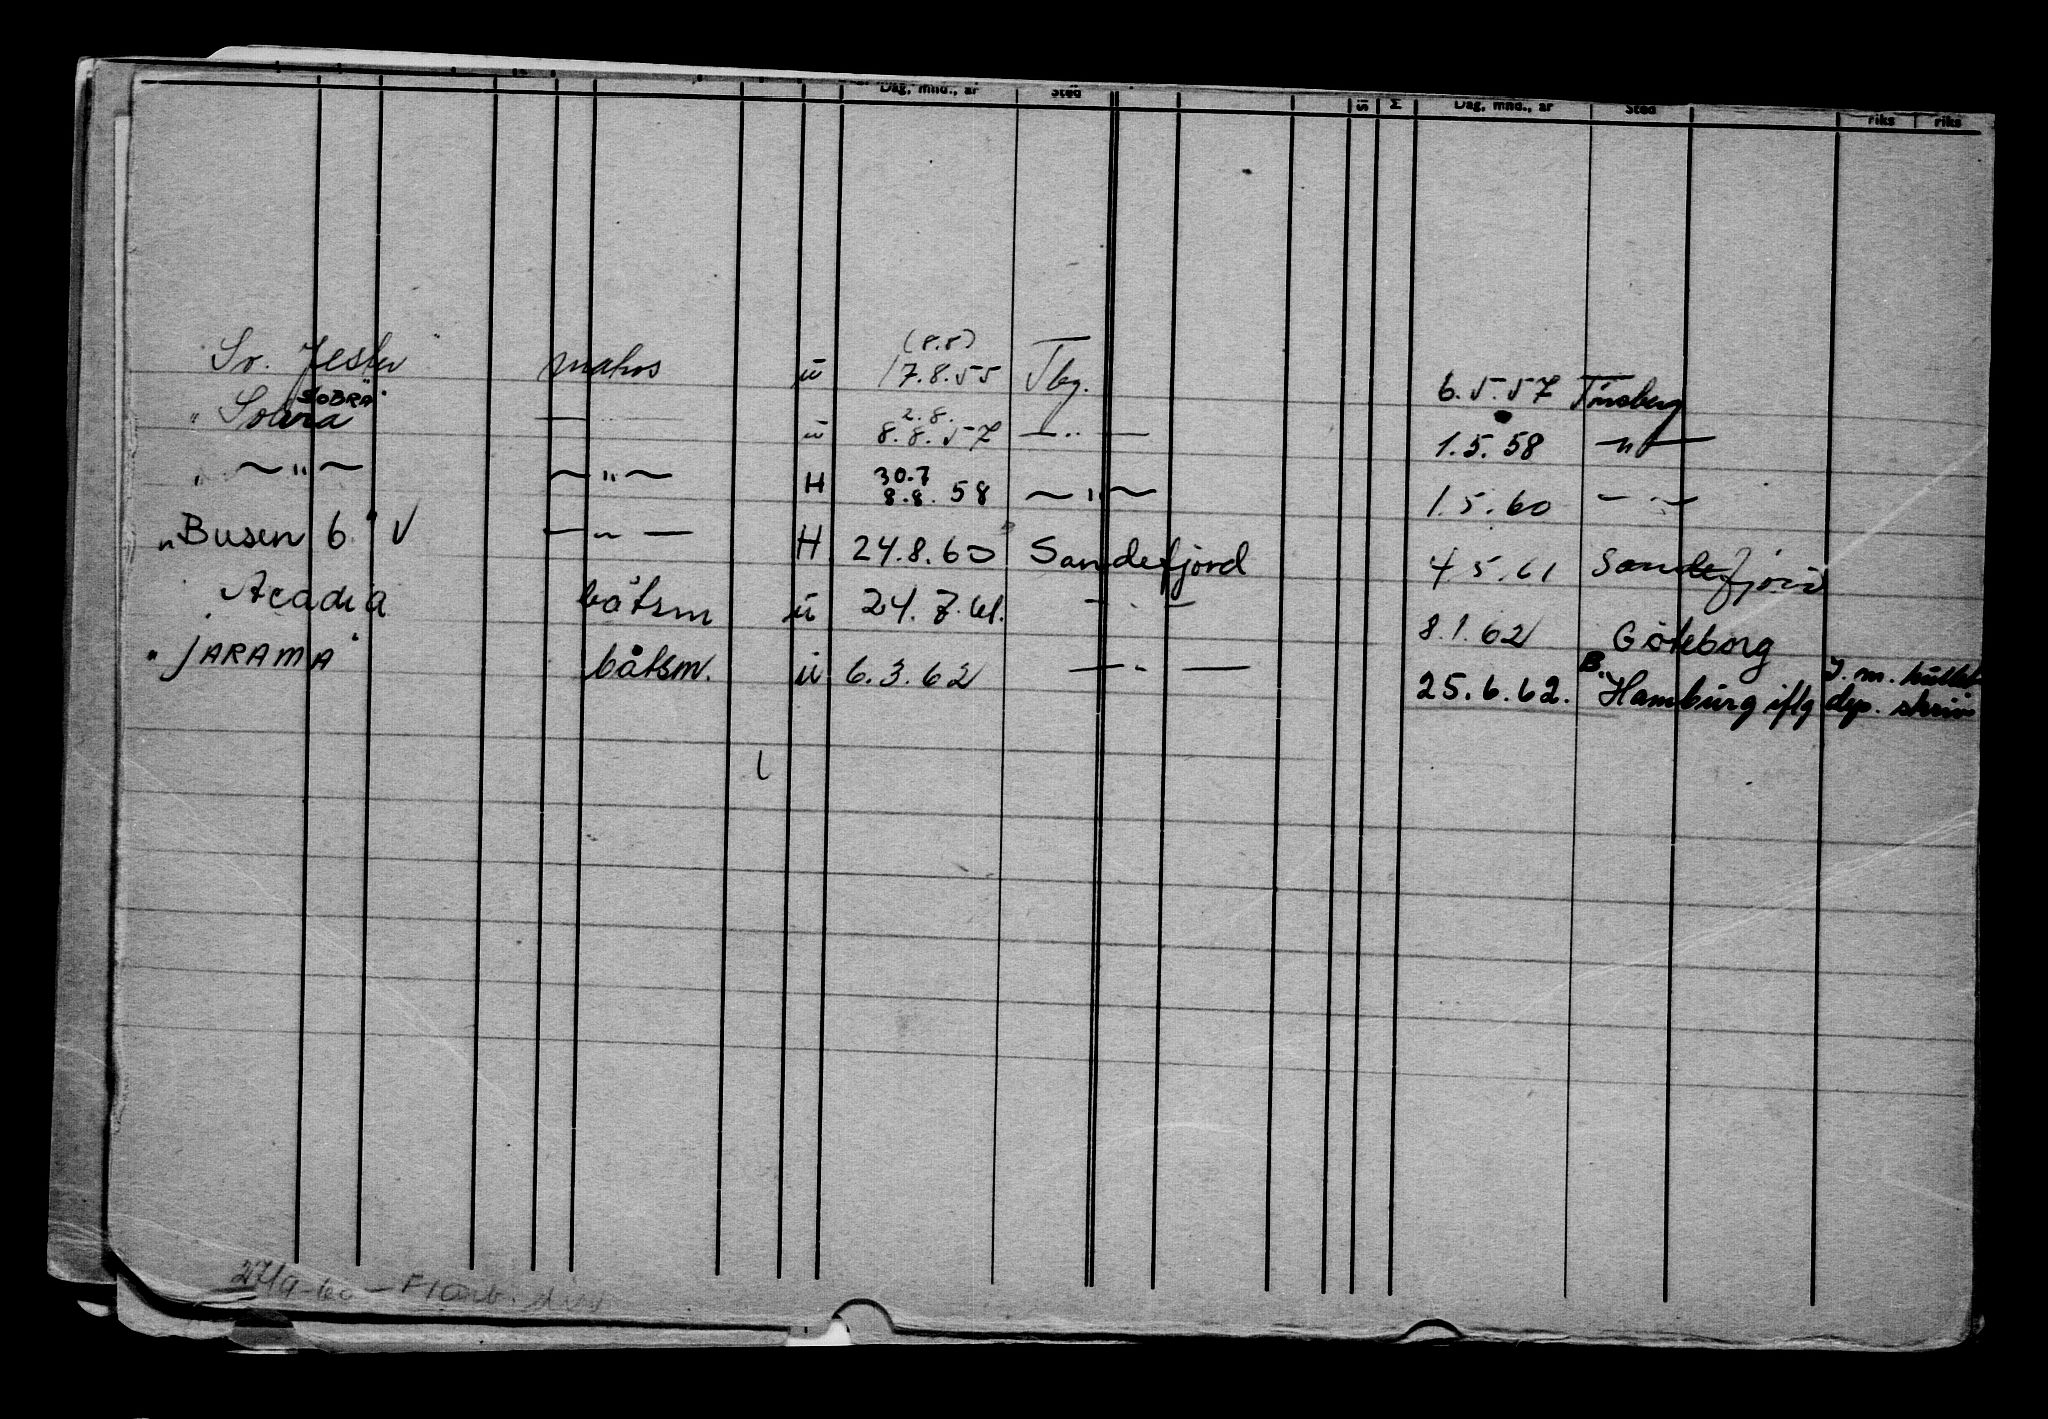 Dag, mnd., år Sted Dag, mnd., år Sted riks riks
(8.8)
Sv. matros ü 17.8.55 Tbg. 6.5.57 Tönsberg
"SOBRA"
" Sobra — 2.8. ü 8.8.57 — " — 1.5.58 — " —
" — " — — " — H 30.7 8.8. 58 — " — 1.5.60 — " —
"Busen 6" V — " — H 24.8.60 Sandefjord 4 5.61 Sandefjord
Acadia båtsm ü 24.7.61. — " — 8.1.62 Göteborg
"JARAMA" båtsm. ü 6.3.62 — " — 25.6.62. B. Hamburg iflg dep. skriv